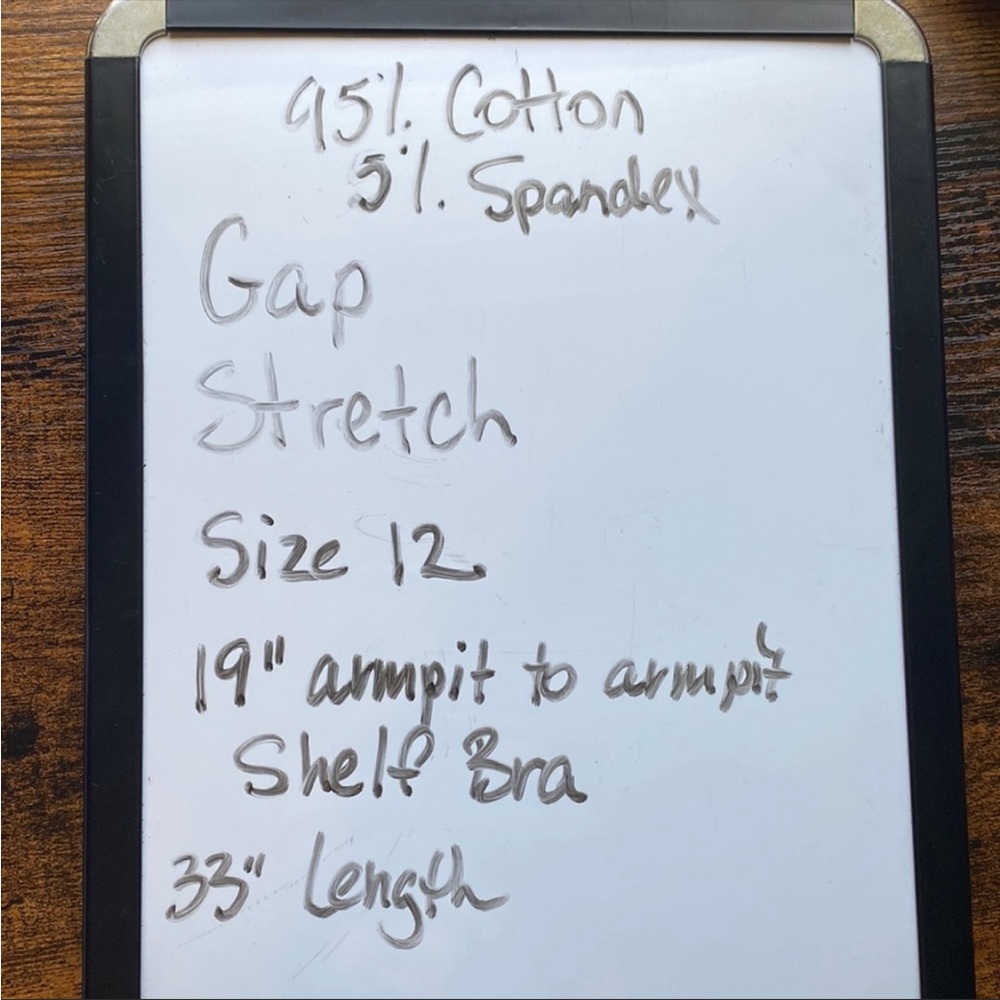 95% Cotton
5% Spandex
Gap
Stretch
Size 12
19" armpit to armpit
Shelf Bra
33" Length